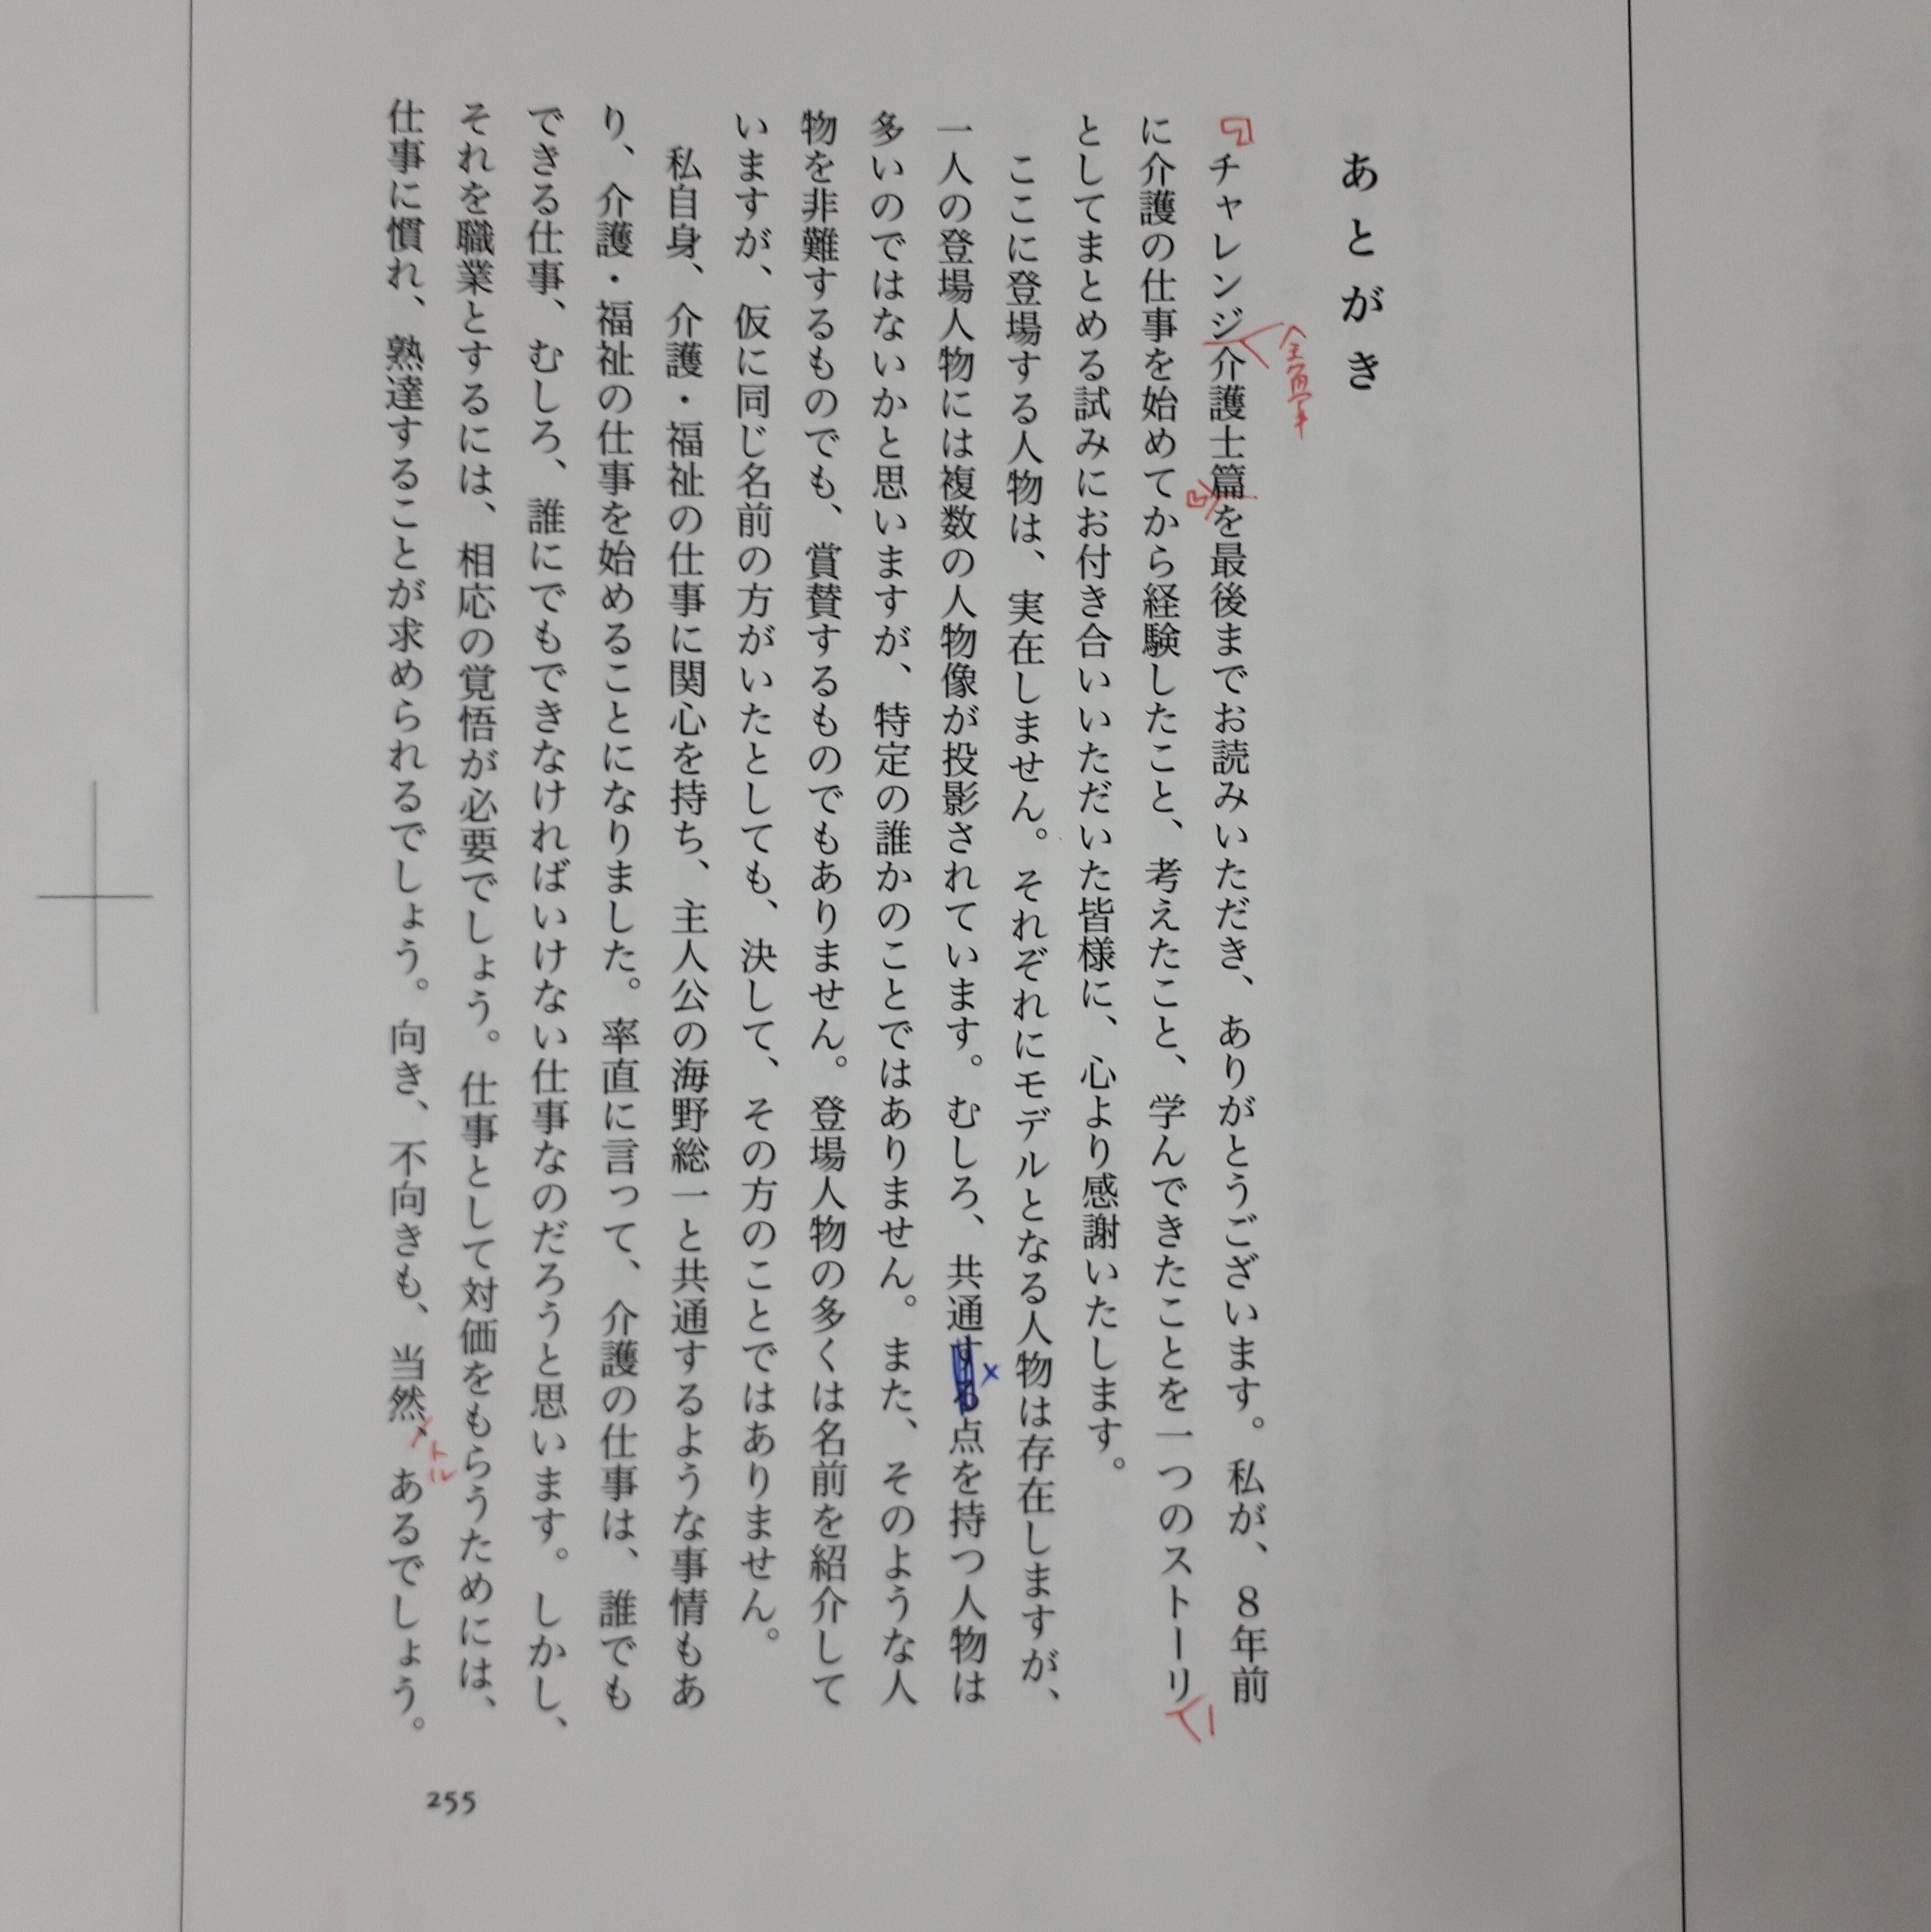 あとがき
『チャレンジ介護士篇を最後までお読みいただき、ありがとうございます。私が、８年前
全角
に介護の仕事を始めてから経験したこと、考えたこと、学んできたことを一つのストーリ
としてまとめる試みにお付き合いいただいた皆様に、心より感謝いたします。
ここに登場する人物は、実在しません。それぞれにモデルとなる人物は存在しますが、
一人の登場人物には複数の人物像が投影されています。むしろ、共通する点を持つ人物は
多いのではないかと思いますが、特定の誰かのことではありません。また、そのような人
物を非難するものでも、賞賛するものでもありません。登場人物の多くは名前を紹介して
いますが、仮に同じ名前の方がいたとしても、決して、その方のことではありません。
私自身、介護・福祉の仕事に関心を持ち、主人公の海野総一と共通するような事情もあ
り、介護・福祉の仕事を始めることになりました。率直に言って、介護の仕事は、誰でも
できる仕事、むしろ、誰にでもできなければいけない仕事なのだろうと思います。しかし、
それを職業とするには、相応の覚悟が必要でしょう。仕事として対価をもらうためには、
仕事に慣れ、熟達することが求められるでしょう。向き、不向きも、当然、あるでしょう。
トル
255